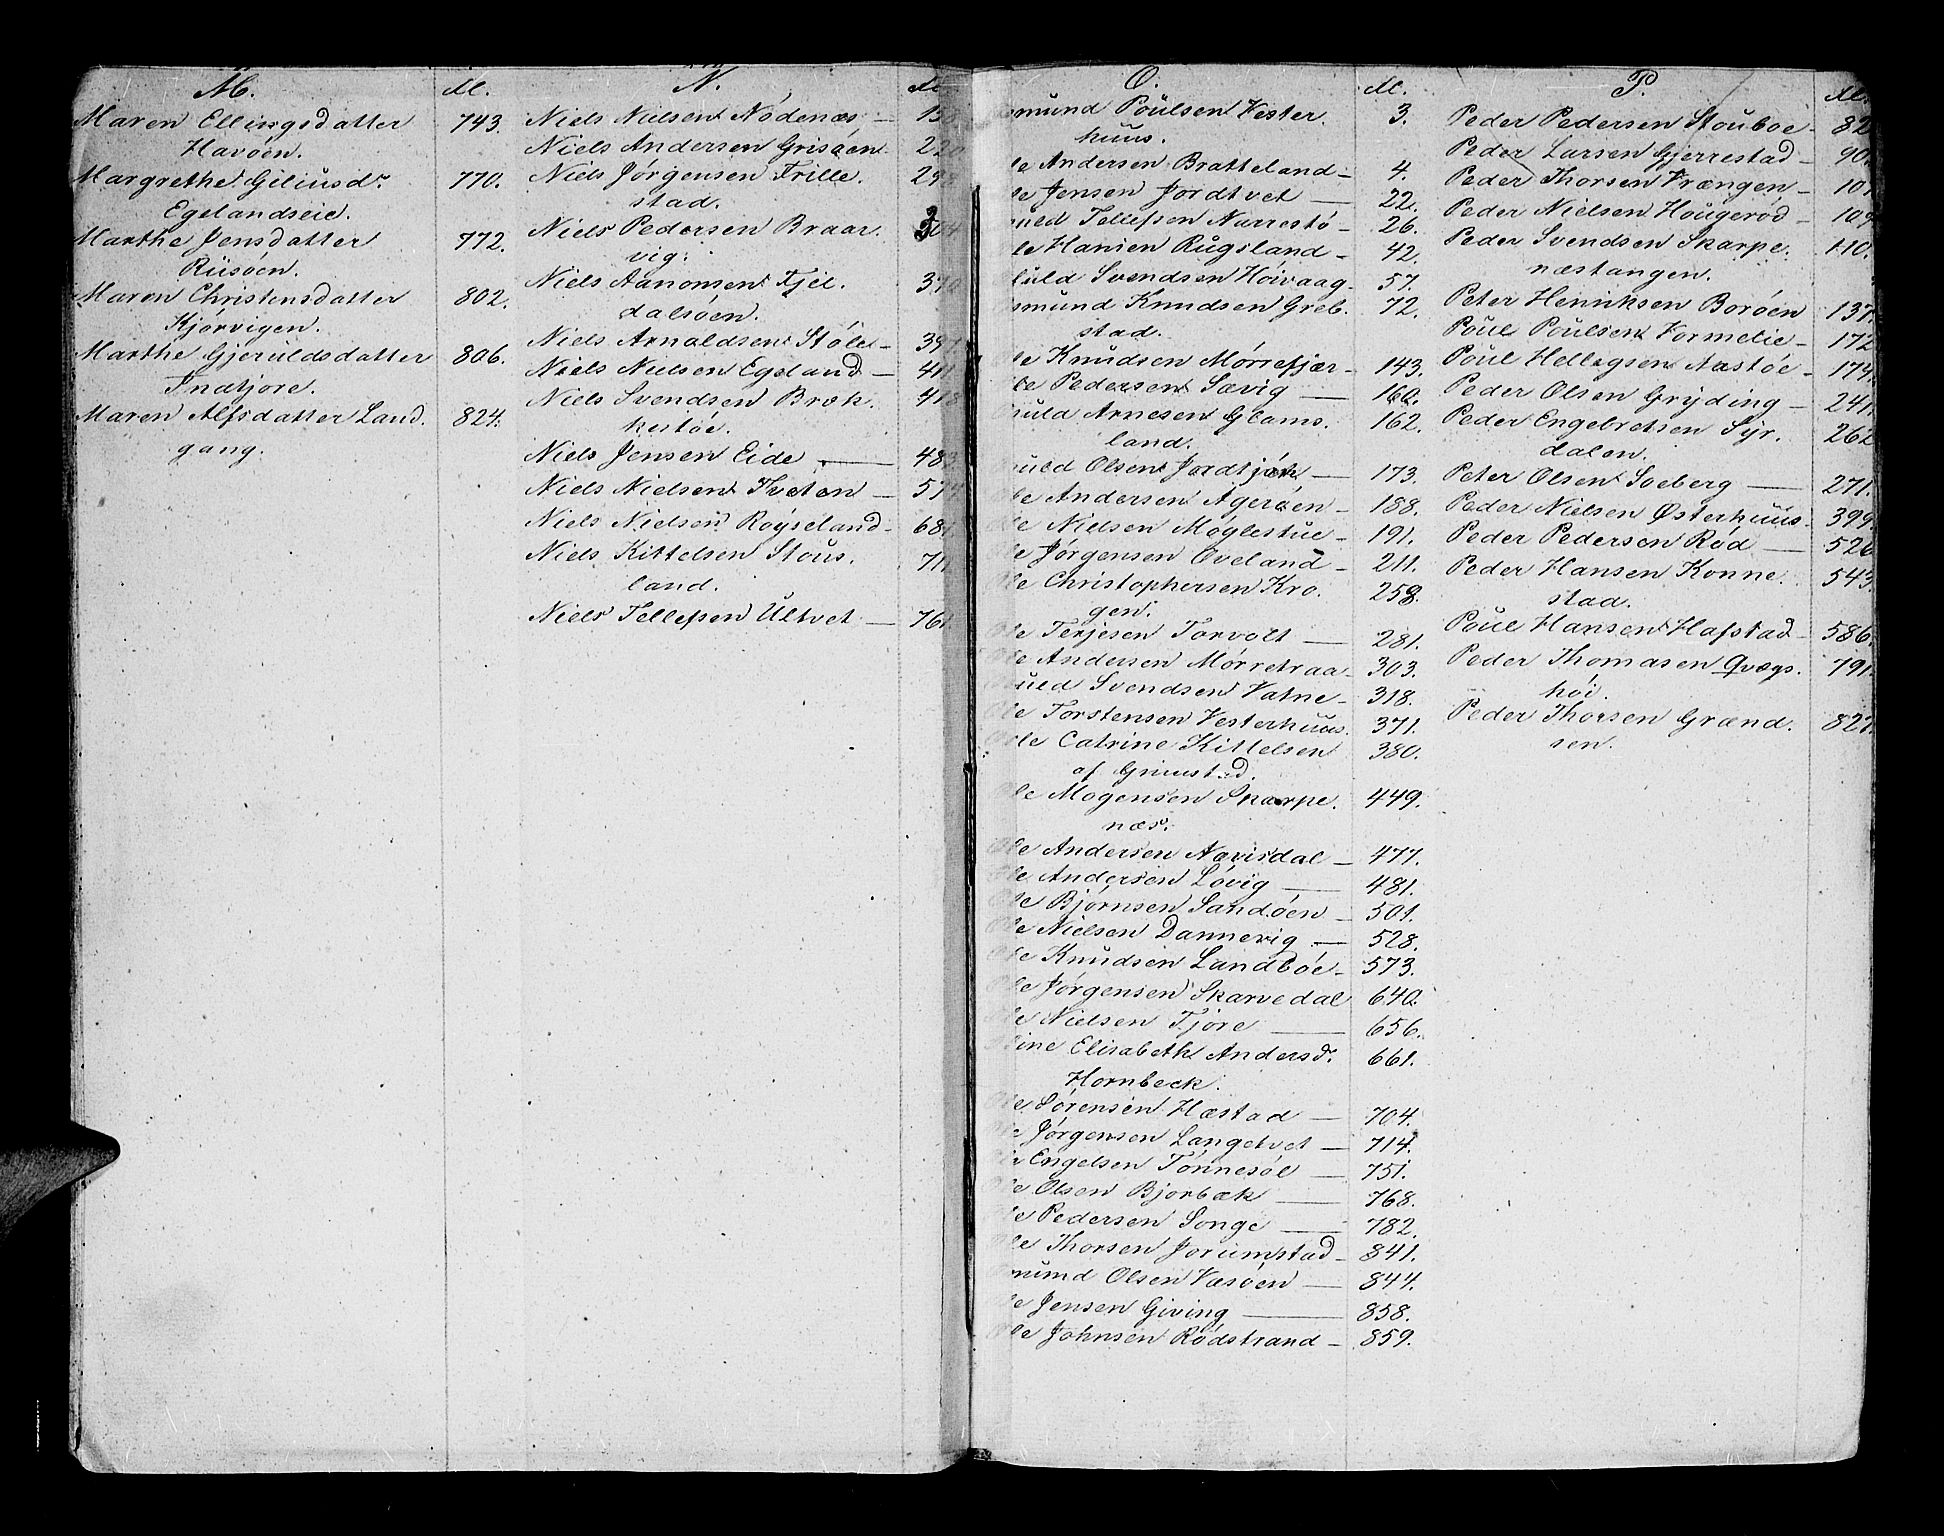 M.
Maren Ellingsdatter 743.
Havöen.
Margrethe Giliusdr. 770.
Egelandseie.
Marthe Jensdatter 772.
Riisöen.
Maren Christensdatter 802.
Kjörvigen.
Marthe Gjeruldsdatter 806.
Indtjore.
Maren Alfsdatter Land. 824.
gang.
N.
Niels Nielsen Nödenæs —
Niels Andersen Grisöen.
Niels Jörgensen Frille.
stad.
Niels Pedersen Braar
vig.
Niels Aanonsen Fjel.
dalsöen.
Niels Arnoldsen Stöle —
Niels Nielsen Egeland —
Niels Svendsen Bræk.
kestöe.
Niels Jensen Eide —
Niels Nielsen Tveten —
Niels Nielsen Röyseland —
Niels Kittelsen Stous.
land.
Niels Tellefsen Ultvet —
O.
mund Poulsen Vester. 3.
huus.
le Andersen Bratteland — 4.
le Jensen Jordtvet — 22.
uld Tellefsen Narrestö — 26.
le Hansen Rugsland — 42.
uld Svendsen Höivaag — 57.
mund Knudsen Greb. 72.
stad.
le Knudsen Mörrefjær — 143.
le Pedersen Sævig — 160.
uld Arnesen Glams. 162.
land.
uld Olsen — 173.
le Andersen Ageröen — 188.
le Nielsen Moglestue — 191.
le Jörgensen Öveland — 211.
le Christophersen Kro. 258.
gen.
le Terjesen Torvolt — 281.
le Andersen Mörretraa — 303.
uld Svendsen Vatne — 318.
le Torstensen Vesterhuus. 371.
le Catrine Kittelsen 380.
af Grimstad.
le Mogensen Skarpe. 449.
næs.
le Andersen Nævisdal — 477.
le Andersen Lövig — 481.
le Björnsen Sandöen — 501.
le Nielsen Dannevig — 528.
le Knudsen Landböe — 573.
le Jörgensen Skarvedal 640.
le Nielsen Tjore — 656.
line Elisabeth Andersdr. 661.
Hornbeck.
le Sörensen Hæstad — 704.
le Jörgensen Langetvet — 714.
le Engelsen Tönnesöl — 751.
le Olsen Bjorbæk — 768.
le Pedersen Songe — 782.
le Thorsen Jorumstad — 841.
mund Olsen Væsöen — 844.
le Jensen Giving — 858.
le Johnsen Rödstrand — 859.
P.
Peder Pedersen Stouboe — 82
Peder Larsen Gjerrestad — 90.
Peder Thorsen Vrængen — 10
Peder Nielsen Hougeröd — 109
Peder Svendsen Skarpe. 110.
næstangen.
Peter Henriksen Boröen 137.
Poul Poulsen Vormelie — 172
Poul Hellegsen Næstöe — 174.
Peder Olsen Gryding — 241.
Peder Engebretsen Syr. 262
dalen.
Peter Olsen Soeberg — 271.
Peder Nielsen Østerhuus. 399.
Peder Pedersen Röd — 526
Peder Hansen Konne. 543
stad.
Poul Hansen Hafstad — 586.
Peder Thomasen Qvægs. 791.
höi.
Peder Thorsen Grænd. 827.
sen.